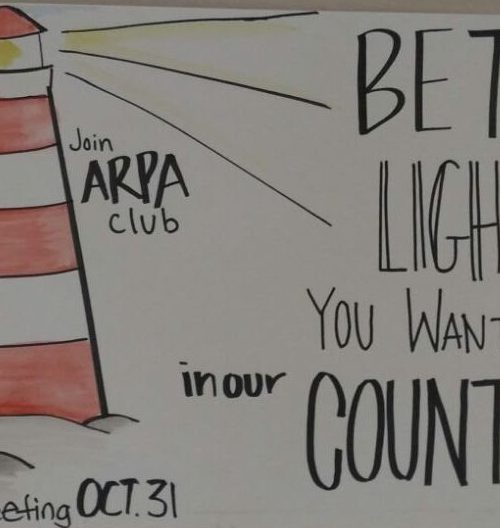 Join
ARPA
club
BET
LIGH
YOU WANT
in our
COUNT
eeting OCT. 31